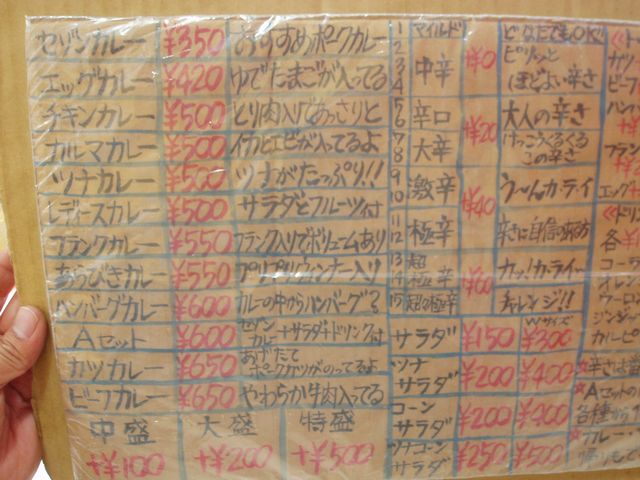 セゾンカレー ¥350 おすすめポークカレー
エッグカレー ¥420 ゆでたまごが入ってる
チキンカレー ¥500 とり肉入りであっさりと
カルマカレー ¥500 イカとエビが入ってるよ
ツナカレー ¥500 ツナがたっぷり!!
レディースカレー ¥500 サラダとフルーツ付
フランクカレー ¥550 フランク入りでボリュームあり
あらびきカレー ¥550 プリプリウィンナー入り
ハンバーグカレー ¥600 カレーの中からハンバーグ?
Aセット ¥600 セゾンカレー+サラダ+ドリンク付
カツカレー ¥650 あげたてポークカツがのってるよ
ビーフカレー ¥650 やわらか牛肉入ってる
中盛 +¥100
大盛 +¥200
特盛 +¥500
1 マイルド
2
3 中辛
4
+¥0
どなたでもOK!
ピリッと
ほどよい辛さ
5 辛口
6
大人の辛さ
7 大辛
8
+¥20
けっこうくるくる
この辛さ
9 激辛
10
う〜んカライ
+¥40
11 極辛
12
辛さに自信のある方
13 超
14 極辛
カッ!カライ〜
+¥60
15 超超極辛
チャレンジ!!
Wサイズ
サラダ ¥150 ¥300
ツナサラダ ¥200 ¥400
コーンサラダ ¥200 ¥400
ツナコーンサラダ ¥250 ¥500